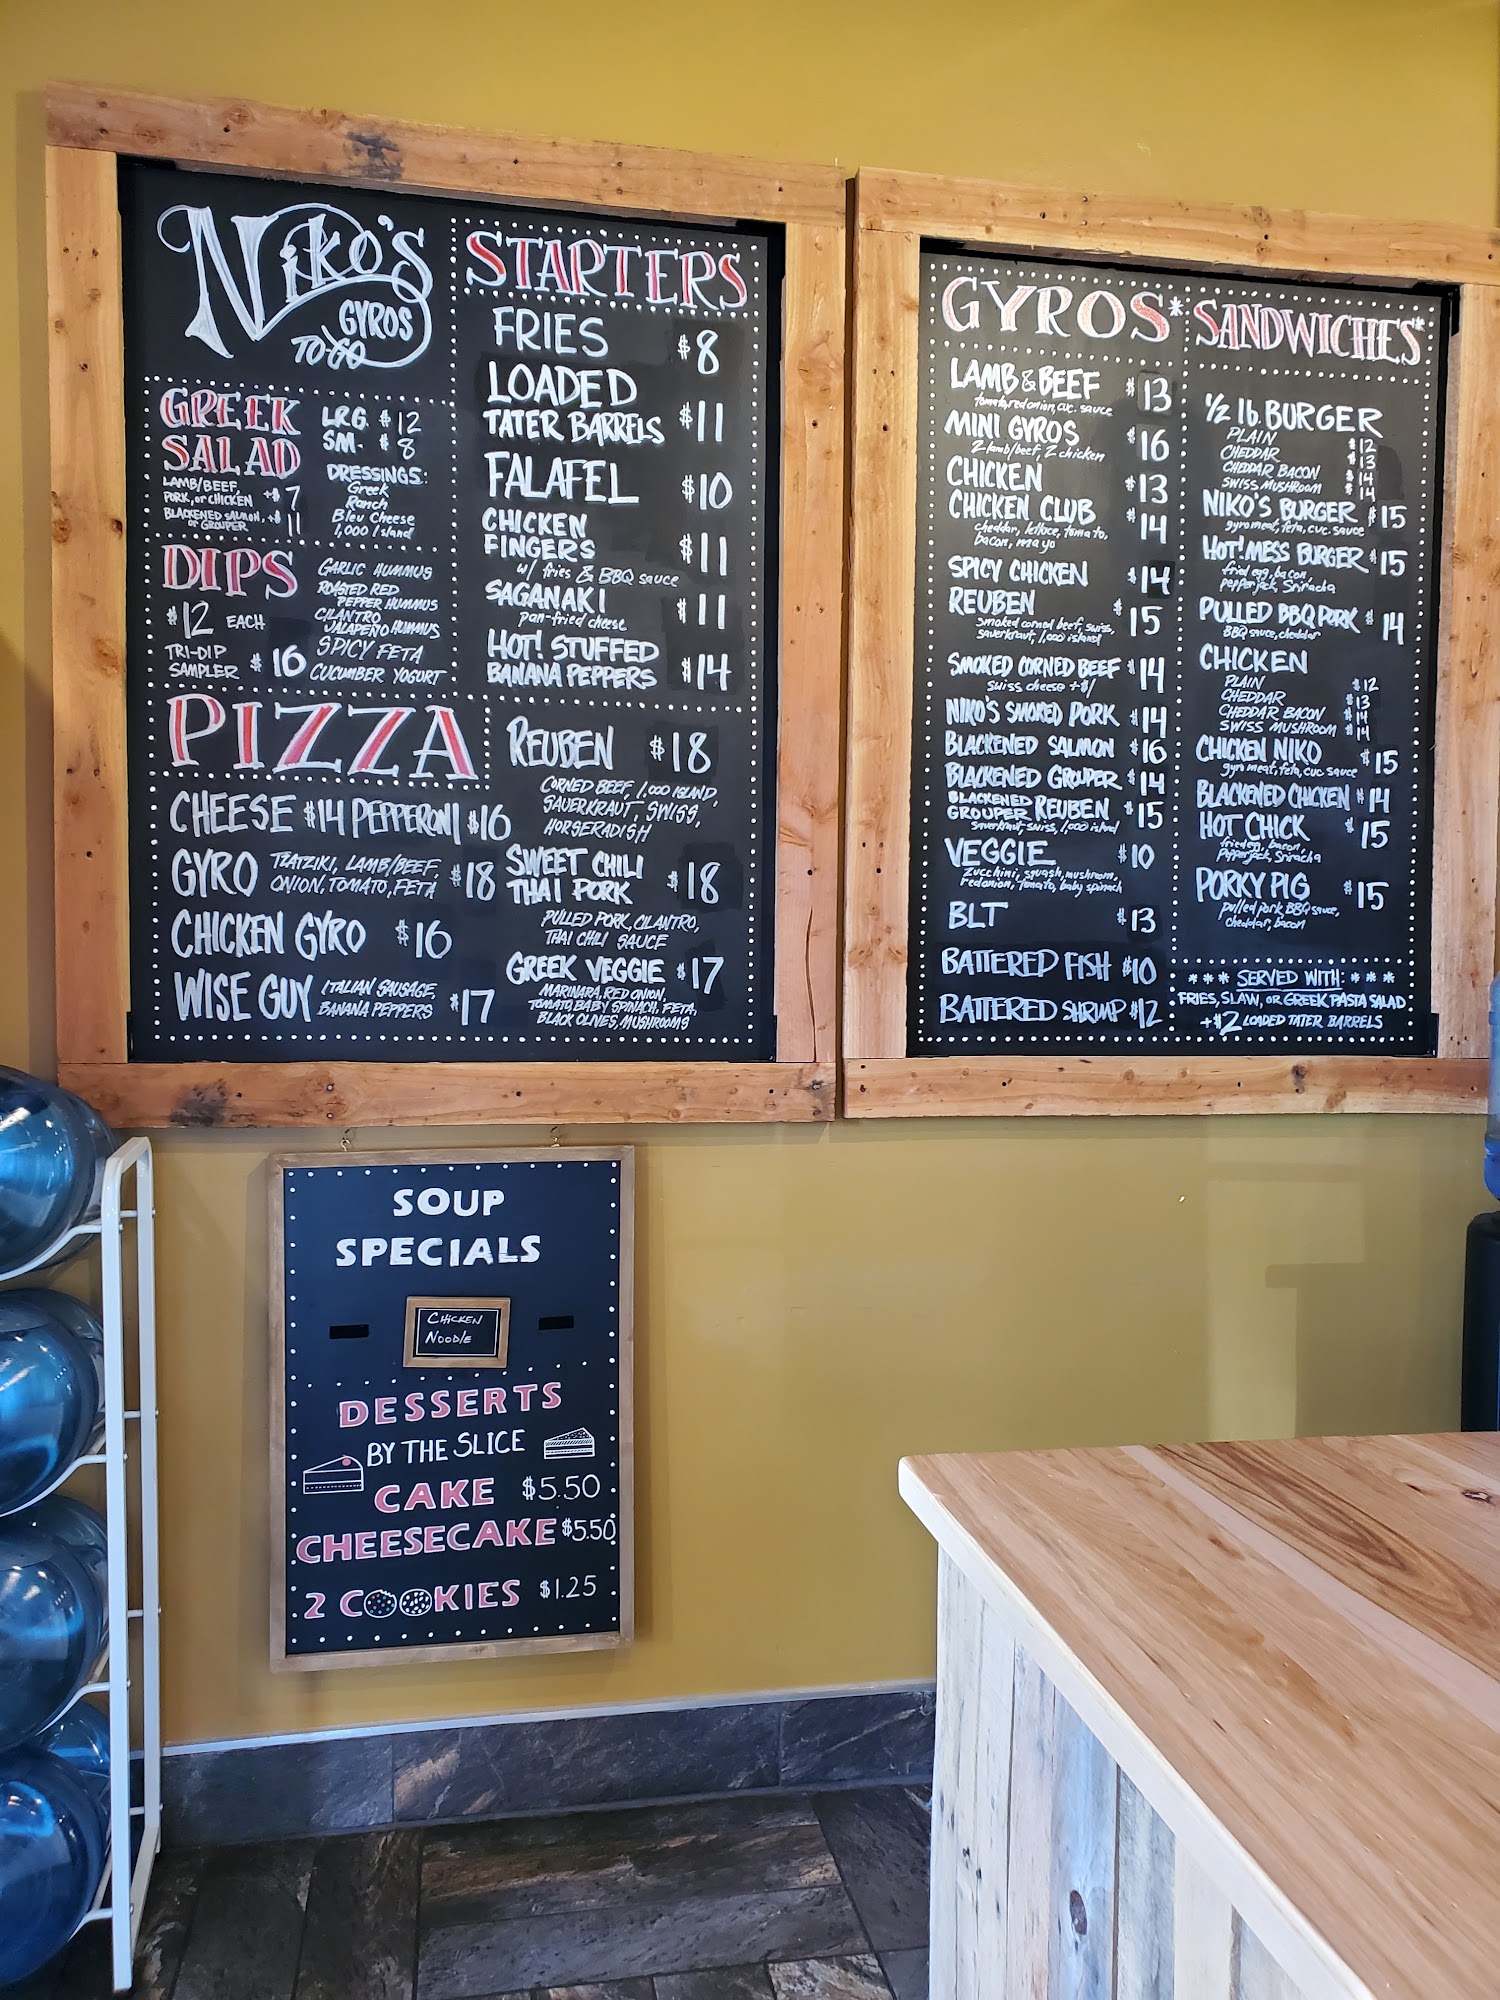 Niko's
GYROS
TO GO
GREEK
SALAD
LRG. $12
SM. $8
LAMB/BEEF,
PORK, or CHICKEN +$7
BLACKENED SALMON, +$11
or GROUPER
DRESSINGS:
Greek
Ranch
Bleu Cheese
1,000 Island
DIPS
$12 EACH
TRI-DIP
SAMPLER $16
GARLIC HUMMUS
ROASTED RED
PEPPER HUMMUS
CILANTRO
JALAPEÑO HUMMUS
SPICY FETA
CUCUMBER YOGURT
STARTERS
FRIES $8
LOADED
TATER BARRELS $11
FALAFEL $10
CHICKEN
FINGERS $11
w/ fries & BBQ sauce
SAGANAKI $11
pan-fried cheese
HOT! STUFFED
BANANA PEPPERS $14
PIZZA
CHEESE $14 PEPPERONI $16
GYRO TZATZIKI, LAMB/BEEF, $18
ONION, TOMATO, FETA
CHICKEN GYRO $16
WISE GUY ITALIAN SAUSAGE, $17
BANANA PEPPERS
REUBEN $18
CORNED BEEF, 1,000 ISLAND,
SAUERKRAUT, SWISS,
HORSERADISH
SWEET CHILI
THAI PORK $18
PULLED PORK, CILANTRO,
THAI CHILI SAUCE
GREEK VEGGIE $17
MARINARA, RED ONION,
TOMATO, BABY SPINACH, FETA,
BLACK OLIVES, MUSHROOMS
GYROS*
LAMB & BEEF $13
tomato, red onion, cuc. sauce
MINI GYROS $16
2 lamb/beef, 2 chicken
CHICKEN $13
CHICKEN CLUB $14
cheddar, lettuce, tomato,
bacon, mayo
SPICY CHICKEN $14
REUBEN $15
smoked corned beef, swiss,
sauerkraut, 1,000 island
SMOKED CORNED BEEF $14
swiss cheese +$1
NIKO'S SMOKED PORK $14
BLACKENED SALMON $16
BLACKENED GROUPER $14
BLACKENED
GROUPER REUBEN $15
sauerkraut, swiss, 1,000 island
VEGGIE $10
zucchini, squash, mushroom,
red onion, tomato, baby spinach
BLT $13
BATTERED FISH $10
BATTERED SHRIMP $12
SANDWICHES*
1/2 lb. BURGER
PLAIN $12
CHEDDAR $13
CHEDDAR BACON $14
SWISS MUSHROOM $14
NIKO'S BURGER $15
gyro meat, feta, cuc. sauce
HOT! MESS BURGER $15
fried egg, bacon,
pepperjack, Sriracha
PULLED BBQ PORK $14
BBQ sauce, cheddar
CHICKEN
PLAIN $12
CHEDDAR $13
CHEDDAR BACON $14
SWISS MUSHROOM $14
CHICKEN NIKO $15
gyro meat, feta, cuc sauce
BLACKENED CHICKEN $14
HOT CHICK $15
fried egg, bacon,
Pepperjack, Sriracha
PORKY PIG $15
pulled pork, BBQ sauce,
cheddar, bacon
*** SERVED WITH: ***
FRIES, SLAW, OR GREEK PASTA SALAD
+$2 LOADED TATER BARRELS
SOUP
SPECIALS
CHICKEN
NOODLE
DESSERTS
BY THE SLICE
CAKE $5.50
CHEESECAKE $5.50
2 COOKIES $1.25